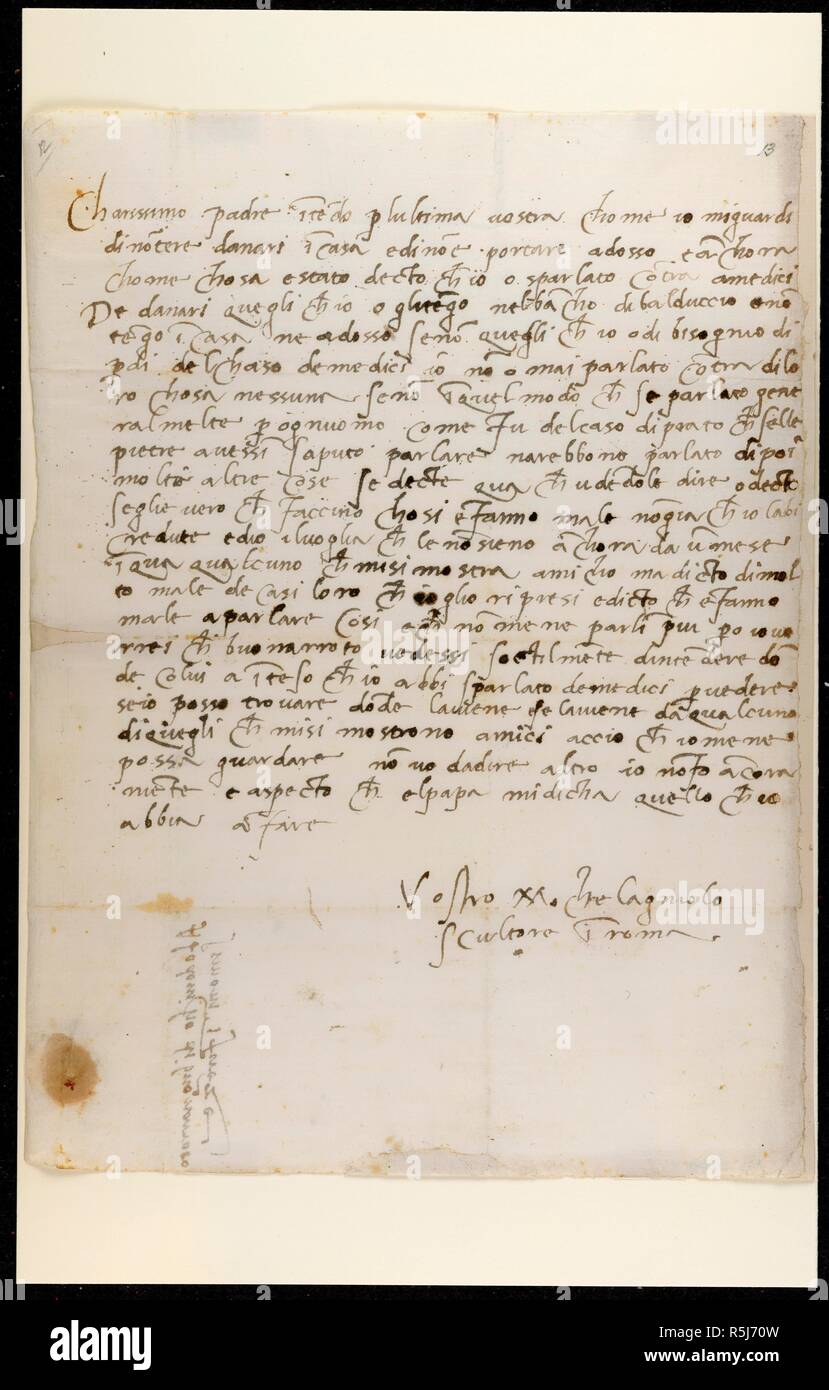 13
Charissimo padre ītēdo p lultima vostra chome io miguardi
dinōtere danari ī casa edinōe portare adosso e āchora
chome chosa estato decto ch̄ io o sparlato cōtra amedici
De danari quegli ch̄ io o glitēgo nel bācho di balduccio e nō
tēgo ī casa ne adosso senō quegli ch̄ io o di bisognio di
p di del chaso demedici io nō o mai parlato cōtra di lo
ro chosa nessuna senō ī quel modo ch̄ se parlato gene
ralmēte p ognuomo come fu del caso di prato ch̄ selle
pietre avessi saputo parlare narebbono parlato dipoi
molte altre cose se decte qua ch̄ udēdole dire o decto
seglie vero ch̄ faccino chosi e fanno male nō gia ch̄ io labi
credute e dio il voglia ch̄ le nō sieno āchora da ū mese ī
qua qualcuno ch̄ mi si mostra amicho ma dicto di mol
to male de casi loro ch̄ io glio ripresi e dicto ch̄ e fanno
male a parlare cosi e ch̄ nō me ne parli piu po io vo
rrei ch̄ buonarroto vedessi soctilmēte dintendere dō
de colui a īteso ch̄ io abbi sparlato demedici p vedere
se io posso trovare dōde la viene e se la viene da qualcuno
di quegli ch̄ mi si mostrono amici accio ch̄ io me ne
possa guardare nō vo dadire altro io nō fo ācora
niente e aspecto ch̄ el papa mi dicha quello ch̄ io
abbia a fare
Vostro Michelagniolo
scultore ī roma
alamy
alamy
Image ID: R5J70W
www.alamy.com